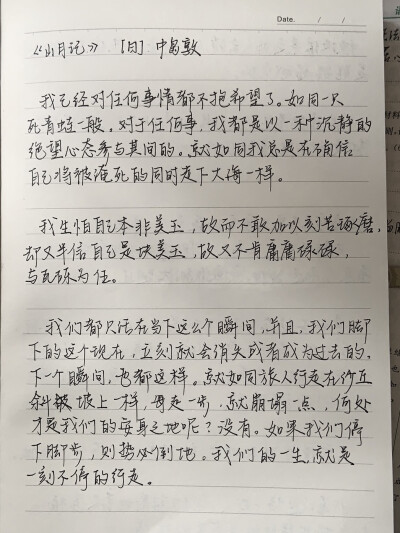 Date. / /
《山月记》 [日] 中岛敦
我已经对任何事情都不抱希望了。如同一只
死青蛙一般。对于任何事,我都是以一种沉静的
绝望心态参与其间的。就如同我总是在确信
自己将被淹死的同时走下大海一样。
我生怕自己本非美玉,故而不敢加以刻苦琢磨,
却又半信自己是块美玉,故又不肯庸庸碌碌,
与瓦砾为伍。
我们都只活在当下这么个瞬间,并且,我们脚
下的这个现在,立刻就会消失或者成为过去的,
下一个瞬间,也都这样。就如同旅人行走在
斜坡上一样,每走一步,就崩塌一点,何处
才是我们的安身之地呢?没有。如果我们停
下脚步,则势必倒地。我们的一生,就是
一刻不停的行走。